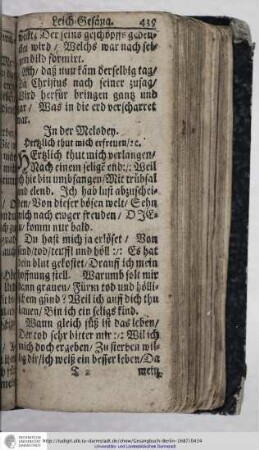 Leich-Gesäng. 439
welt/ Der seins geschöpffs geden-
cket wird / Welchs war nach sei-
nem bild formirt.
Ach/ daß nun käm derselbig tag/
Da Christus nach seiner zusag/
Wird herfür bringen gantz und
gar / Was in die erd verscharret
war.
In der Melodey.
Hertzlich thut mich erfreuen/ꝛc.
HErtzlich thut mich verlangen/
Nach einem seligē end: /: Weil
ich hie bin umbfangen/ Mit trübsal
und elend. Ich hab lust abzuschei-
den/ Von dieser bösen welt/ Sehn
mich nach ewger freuden / O JE-
su/ komm nur bald.
Du hast mich ja erlöset / Von
sünd/tod/teuffl und höll :/: Es hat
dein blut gekostet/ Drauff ich mein
hoffnung stell. Warumb solt mir
dann grauen/ Fürm tod und hölli-
schem gsind? Weil ich auff dich thu
bauen/ Bin ich ein seligs kind.
Wann gleich süß ist das leben/
Der tod sehr bitter mir :/: Wil ich
mich doch ergeben/ Zu sterben wil-
lig dir/ ich weiß ein besser leben/ Da
mein